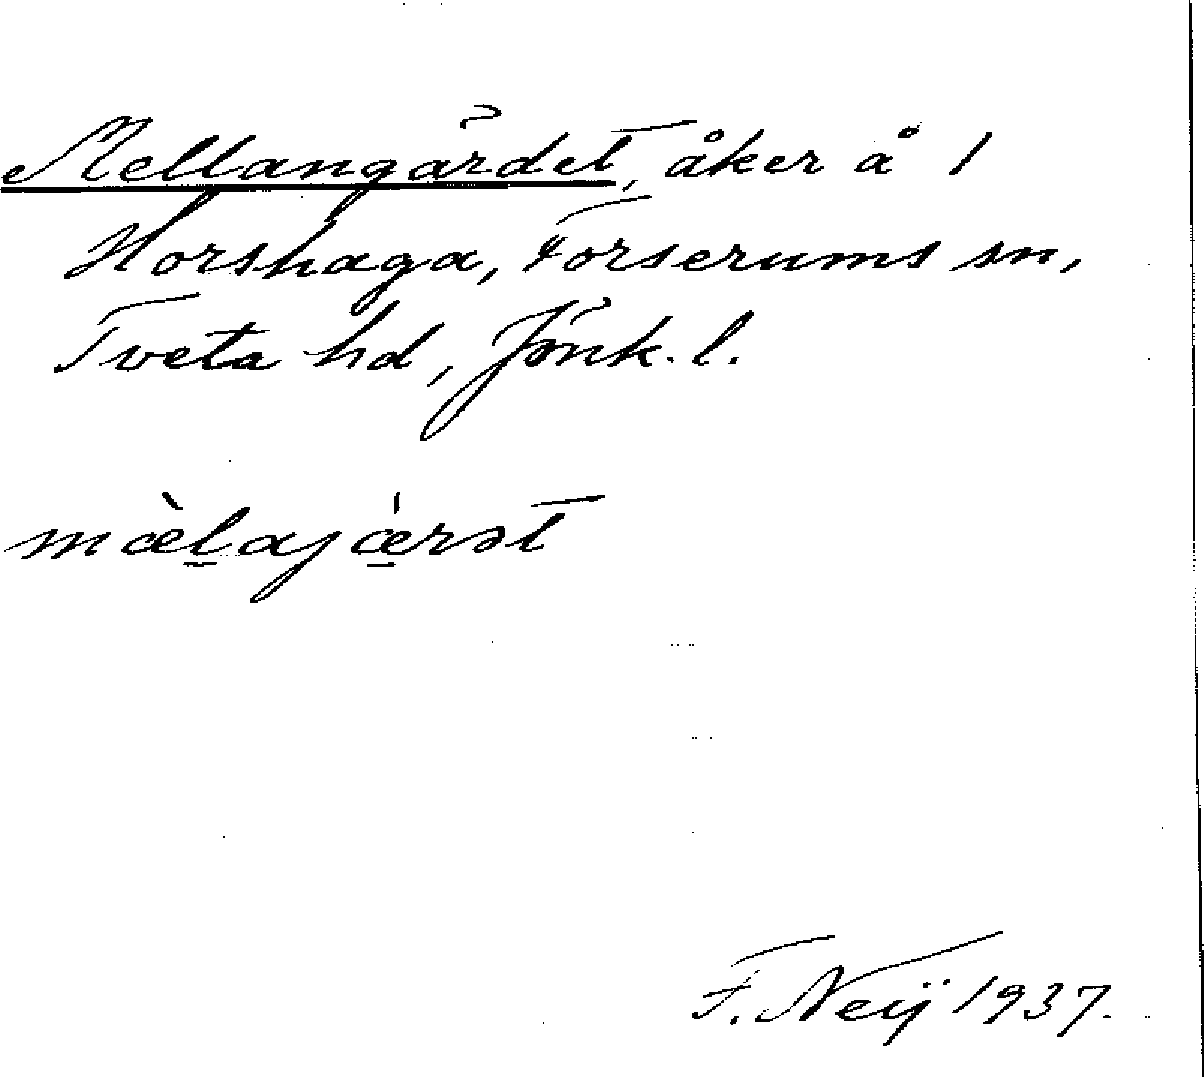 Mellangärdet, åker å 1
Horshaga, Forserums sn,
Tveta hd, Jönk. l.
mæ̀lajæ̀rət
F. Neij 1937.